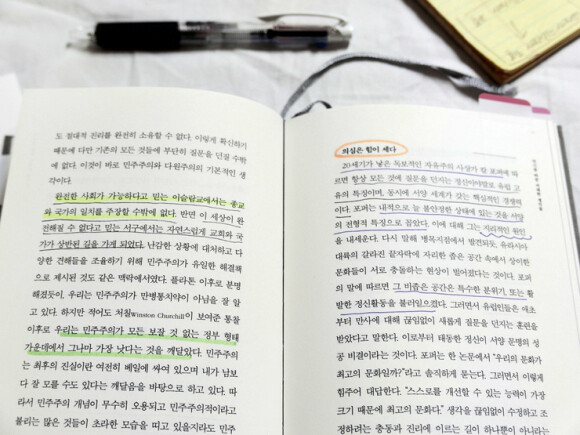 도 절대적 진리를 완전히 소유할 수 없다. 이렇게 확신하기
때문에 다만 기존의 모든 것들에 부단히 질문을 던질 수밖
에 없다. 이것이 바로 민주주의와 다원주의의 기본적인 생
각이다.
완전한 사회가 가능하다고 믿는 이슬람교에서는 종교
와 국가의 일치를 주장할 수밖에 없다. 반면 이 세상이 완
전해질 수 없다고 믿는 서구에서는 자연스럽게 교회와 국
가가 상반된 길을 가게 되었다. 난감한 상황에 대처하고 다
양한 견해들을 조율하기 위해 민주주의가 유일한 해결책
으로 제시된 것도 같은 맥락에서였다. 플라톤 이후로 분명
해졌듯이, 우리는 민주주의가 만병통치약이 아님을 잘 알
고 있다. 하지만 적어도 처칠Winston Churchill이 보여준 통찰
이후로 우리는 민주주의가 모든 보잘 것 없는 정부 형태
가운데에서 그나마 가장 낫다는 것을 깨달았다. 민주주의
는 최후의 진실이란 여전히 베일에 싸여 있으며 내가 남보
다 잘 모를 수도 있다는 깨달음을 바탕으로 하고 있다. 따
라서 민주주의 개념이 무수히 오용되고 민주주의적이라고
불리는 많은 것들이 초라한 모습을 띠고 있을지라도 민주
의심은 힘이 세다
20세기가 낳은 독보적인 자유주의 사상가 칼 포퍼에 따
르면 항상 모든 것에 질문을 던지는 정신이야말로 유럽 고
유의 특징이며, 동시에 서양 세계가 갖는 핵심적인 경쟁력
이다. 포퍼는 내적으로 늘 불안정한 상태에 있는 것을 서양
의 전형적 특징으로 꼽았다. 이에 대해 그는 지리적인 원인
을 내세운다. 다시 말해 병목지점에서 발견되듯, 유라시아
대륙의 갈라진 끝자락에 자리한 좁은 공간 속에서 상이한
문화들이 서로 충돌하는 현상이 벌어졌다는 것이다. 포퍼
의 말에 따르면 그 비좁은 공간은 특수한 분위기, 또는 활
발한 정신활동을 불러일으켰다. 그러면서 유럽인들은 애초
부터 만사에 대해 끊임없이 새롭게 질문을 던지는 훈련을
받았다고 말한다. 이로부터 태동한 정신이 서양 문명의 성
공 비결이라는 것이다. 포퍼는 한 논문에서 "우리의 문화가
최고의 문화일까?"라고 솔직하게 묻는다. 그러면서 이렇게
힘주어 대답한다. "스스로를 개선할 수 있는 능력이 가장
크기 때문에 최고의 문화다." 생각을 끊임없이 수정하고 조
정하려는 충동과 진리에 이르는 길이 하나뿐이 아니라는